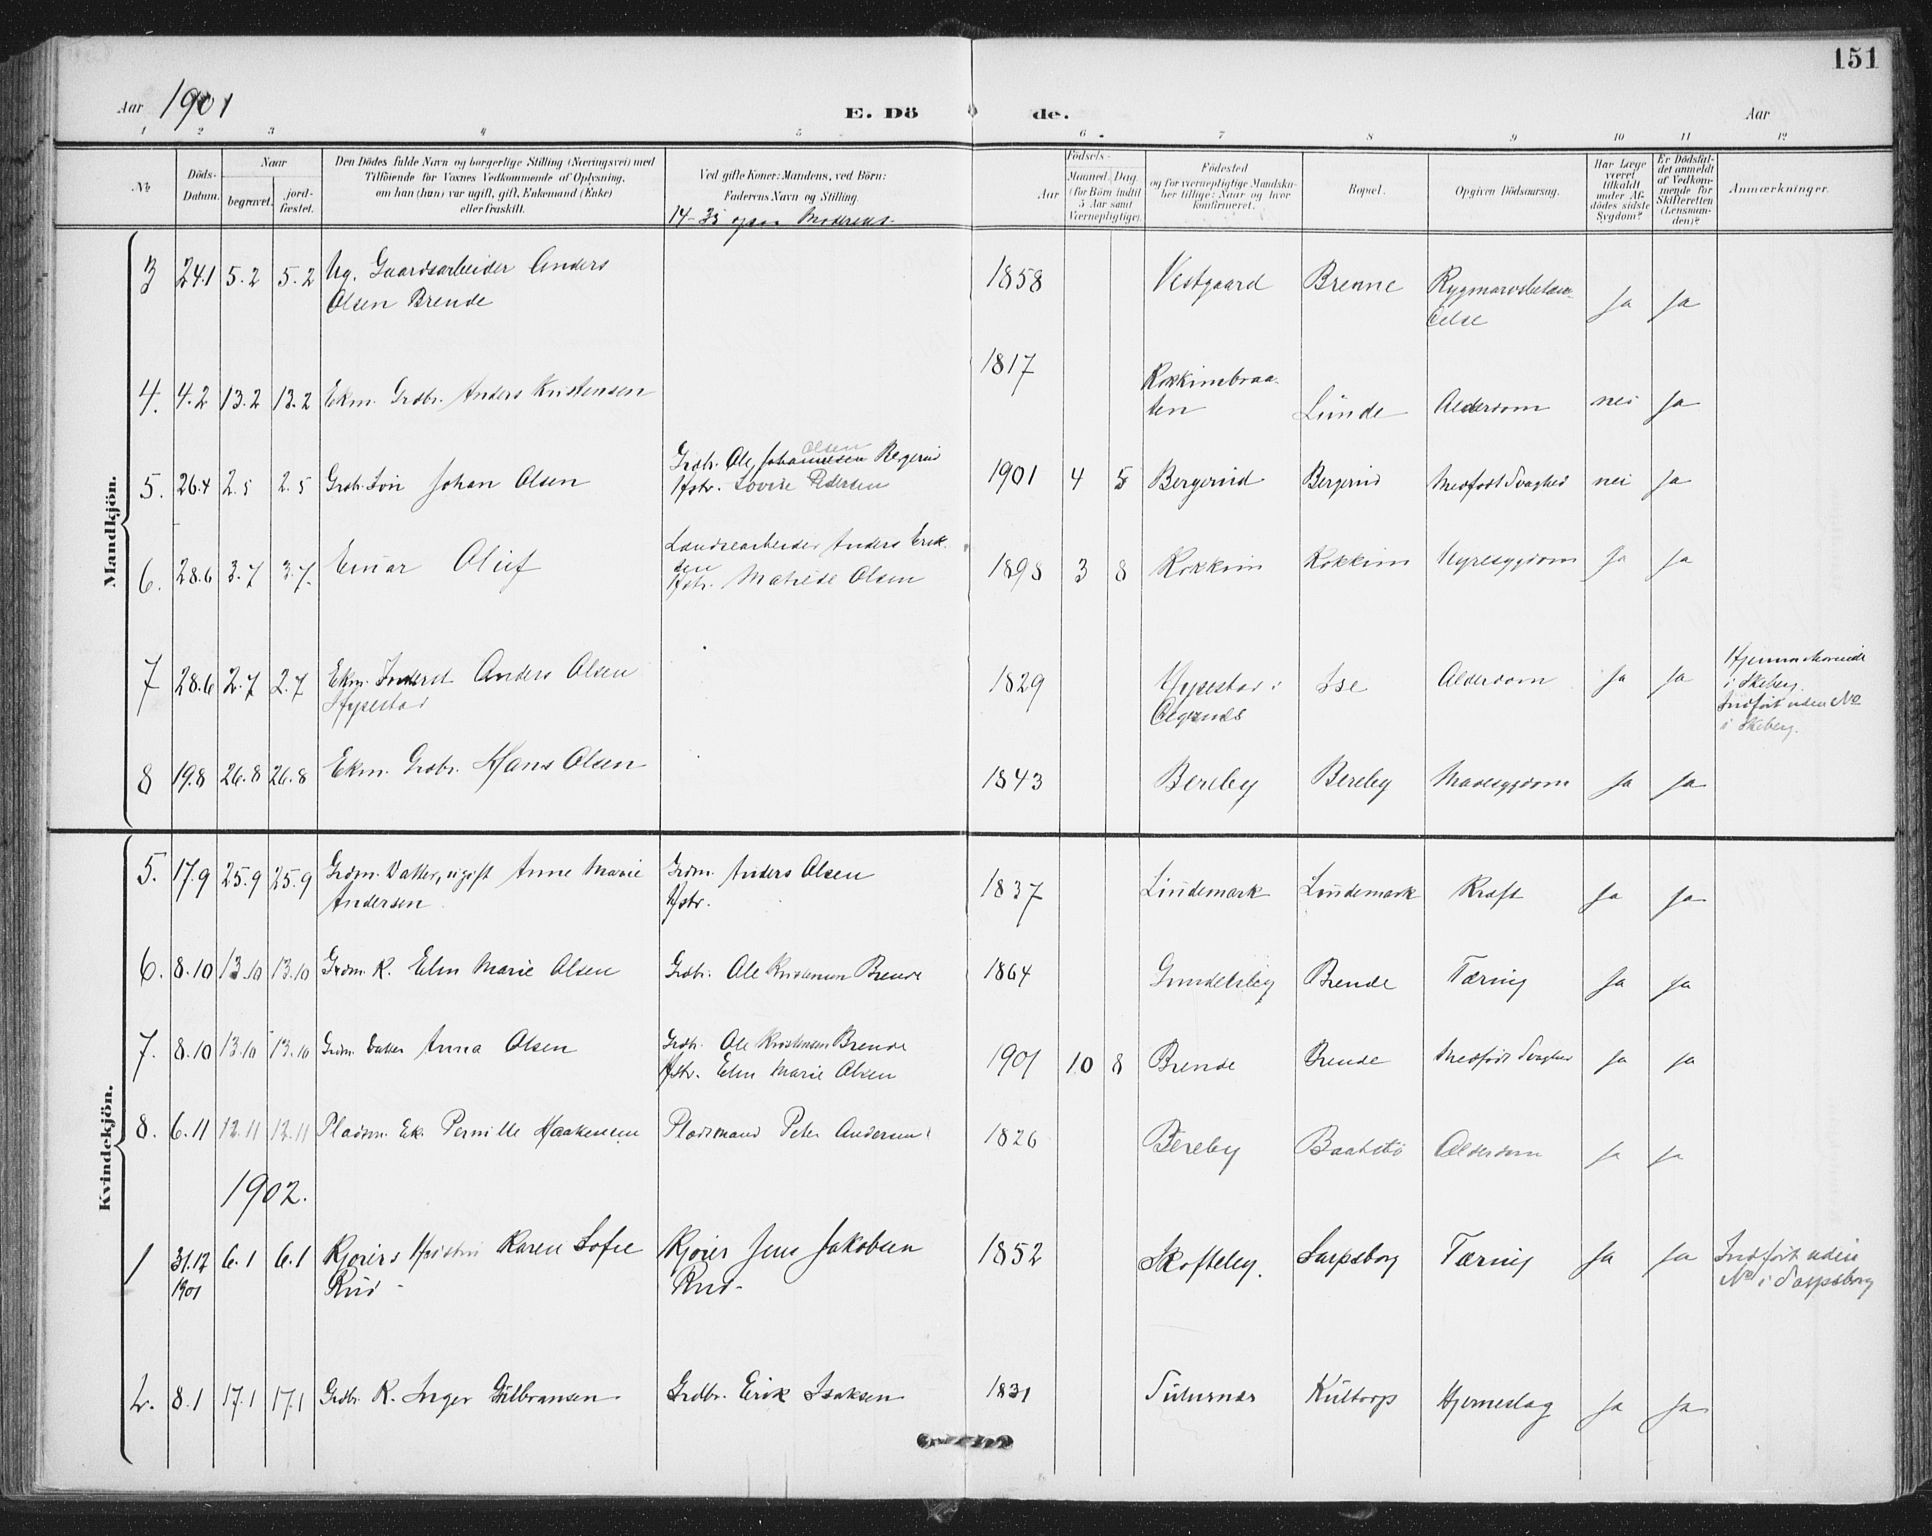 151
Aar 1901
E. Dö de.
Aar
1 2 3 4 5 6 7 8 9 10 11 12
No
Döds-Datum.
Naar
begravet.
jord-fæstet.
Den Dödes fulde Navn og borgerlige Stilling (Næringsvei) med
Tilföiende for Voxnes Vedkommende af Oplysning,
om han (hun) var ugift, gift, Enkemand (Enke)
eller fraskilt.
Ved gifte Koner: Mandens, ved Börn:
Faderens Navn og Stilling.
14-35 ogsaa Moderens
Födsels-
Aar
Maaned. Dag.
(for Börn indtil
5 Aar samt
Værnepligtige)
Födested
og for værnepligtige Mandskaber tillige: Naar og hvor
konfirmeret.
Bopæl.
Opgiven Dödsaarsag.
Har Læge
været
tilkaldt
under Afdödes sidste
Sygdom?
Er Dödsfaldet anmeldt
af Vedkommende for
Skifteretten
(Lensmanden)?
Anmærkninger.
Mandkjön.
3 24.1 5.2 5.2 Ug. Gaardsarbeider Anders 1858 Vestgaard Brenne
Olsen Brende Ja Ja
4. 4.2 13.2 13.2 Ekm. Grdbr. Anders Kristensen 1817 Kokkimbraa-
ten Lunde Alderdom nei Ja
5. 26.4 2.5 2.5 Grdb. Søn Johan Olsen Grdbr. Ole Johannesen Olsen Bergerud 1901 4 5 Bergerud Bergerud Medfødt Svaghed nei Ja
Hstr. Lovise Pedersen
6. 28.6 3.7 3.7 Einar Oluf Landsearbeider Anders Erik-
sen 1898 3 8 Kokkim Kokkim Nyresygdom Ja Ja
Hstr. Matilde Olsen
7 28.6 2.7 2.7 Ekm. Inderst Anders Olsen 1829 Hysestad i Ise Alderdom Ja Ja Hjemmehørende
Hysestad i Skeberg.
Indført uden No
i Skeberg.
8 19.8 26.8 26.8 Ekm. Grdbr. Hans Olsen 1843 Bereby Bereby Mavesygdom Ja Ja
Kvindekjön.
5. 17.9 25.9 25.9 Grdm. Datter, ugift Anne Marie Grdm. Anders Olsen 1837 Lindemark Lindemark Kræft Ja Ja
Andersen Hstr.
6. 8.10 13.10 13.10 Grdm. K. Elen Marie Olsen Grdbr. Ole Kristensen Brende 1864 Gundelsby Brende Tæring Ja Ja
7. 8.10 13.10 13.10 Grdm. Datter Anna Olsen Grdb. Ole Kristensen Brende 1901 10 8 Brende Brende Medfødt Svaghed Ja Ja
Hstr. Elen Marie Olsen
8. 6.11 12.11 12.11 Pladsm. Ek. Pernille Haakensen Pladsmand Peter Andersen 1826 Bereby Baatstø Alderdom Ja Ja
1902.
1 31.12 6.1 6.1 Kjørers Hustru Karen Sofie Kjører Jens Jakobsen 1852 Skofteby. Sarpsborg Tæring Ja Ja Indført uden
1901 Rud - Rud - No i Sarpsborg
2. 8.1 17.1 17.1 Grdbr. K. Inger Gulbransen Grdbr. Erik Isaksen 1831 Kultorp Hjerneslag Ja Ja